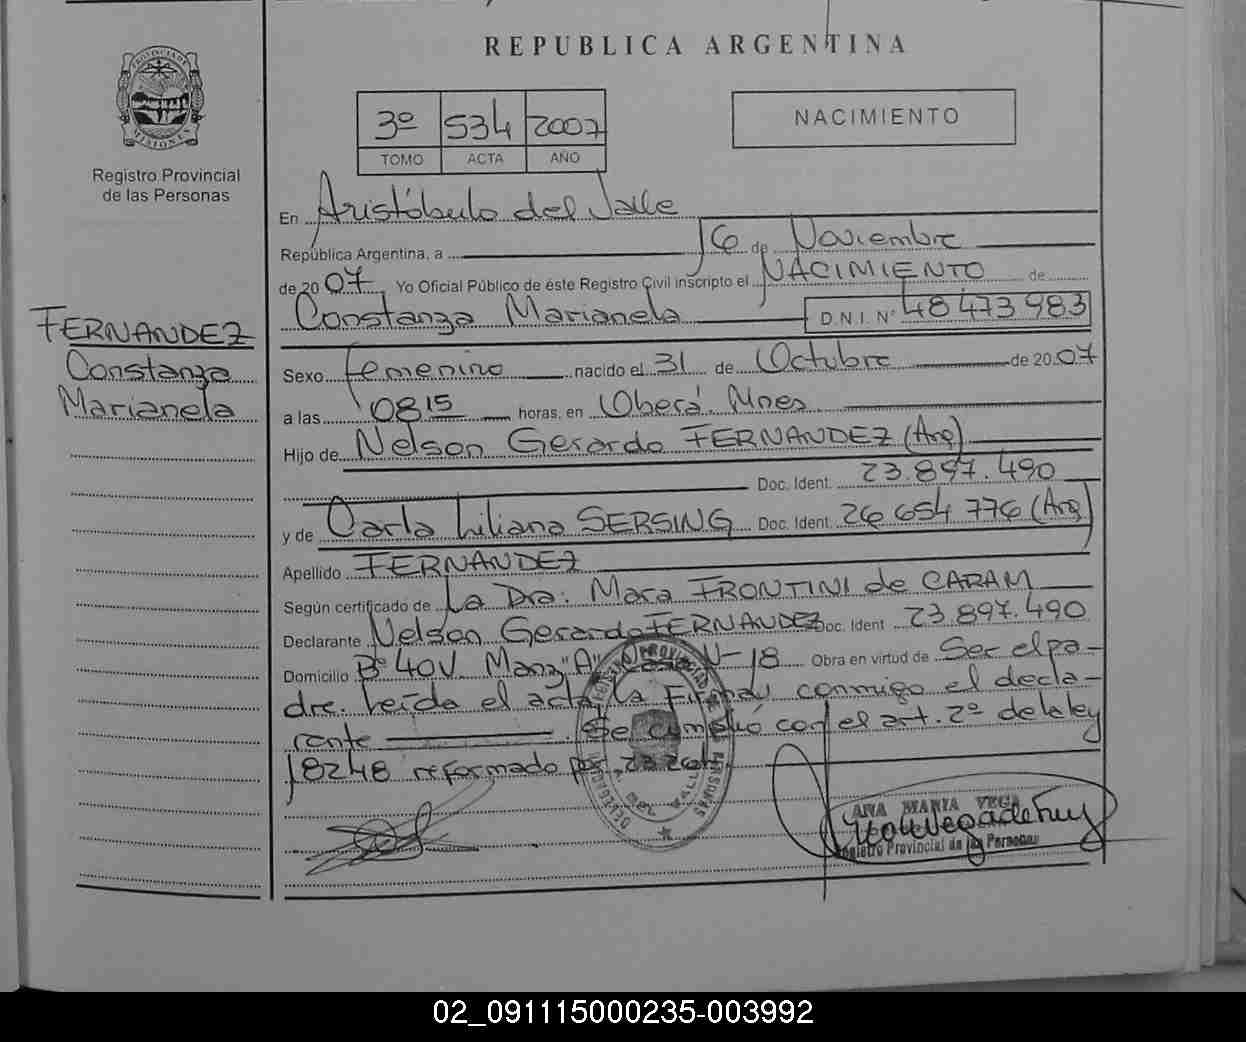 REPUBLICA ARGENTINA
PROVINCIA DE MISIONES
Registro Provincial
de las Personas
3º 534 2007
TOMO ACTA AÑO
NACIMIENTO
En Aristóbulo del Valle
República Argentina, a 16 de Noviembre
de 2007 Yo Oficial Público de éste Registro Civil inscripto el NACIMIENTO de
Constanza Marianela D.N.I. Nº 48 473 983
FERNANDEZ
Constanza
Marianela
Sexo femenino nacido el 31 de Octubre de 2007
a las 08 15 horas, en Oberá. Mnes
Hijo de Nelson Gerardo FERNANDEZ (Arg)
Doc. Ident. 23.897.490
y de Carla Liliana SERSING Doc. Ident. 26 654 776 (Arg)
Apellido FERNANDEZ
Según certificado de La Dra. Mara FRONTINI de CARAM
Declarante Nelson Gerardo FERNANDEZ Doc. Ident 23.897.490
Domicilio Bº 40V. Manz "A" Casa N-18 Obra en virtud de Ser el pa-
dre. Leída el acta, la Firma conmigo el decla-
rante. Se cumplió con el art. 2º de la ley
18248 reformado por
ANA MARIA VEGA
Registro Provincial de las Personas
02_091115000235-003992